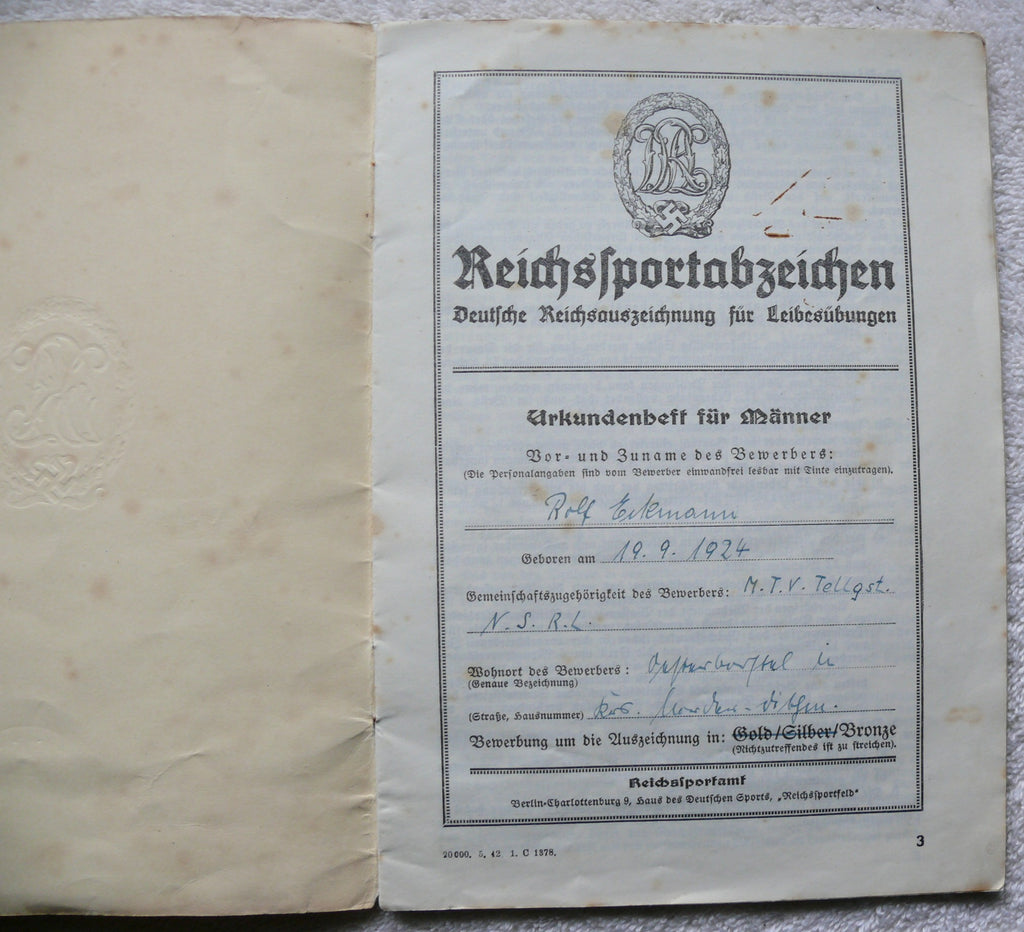 DRL
Reichssportabzeichen
Deutsche Reichsauszeichnung für Leibesübungen
Urkundenheft für Männer
Vor- und Zuname des Bewerbers:
(Die Personalangaben sind vom Bewerber einwandfrei lesbar mit Tinte einzutragen).
Rolf Eckmann
Geboren am 19. 9. 1924
Gemeinschaftszugehörigkeit des Bewerbers: M.T.V. Tellgst.
N. S. R. L.
Wohnort des Bewerbers: Oesterborstel in
(Genaue Bezeichnung)
(Straße, Hausnummer) Krs. Norder-Dithm.
Bewerbung um die Auszeichnung in: Gold/Silber/Bronze
(Nichtzutreffendes ist zu streichen).
Reichssportamt
Berlin-Charlottenburg 9, Haus des Deutschen Sports, „Reichssportfeld“
20000. 5. 42 1. C 1378.
3